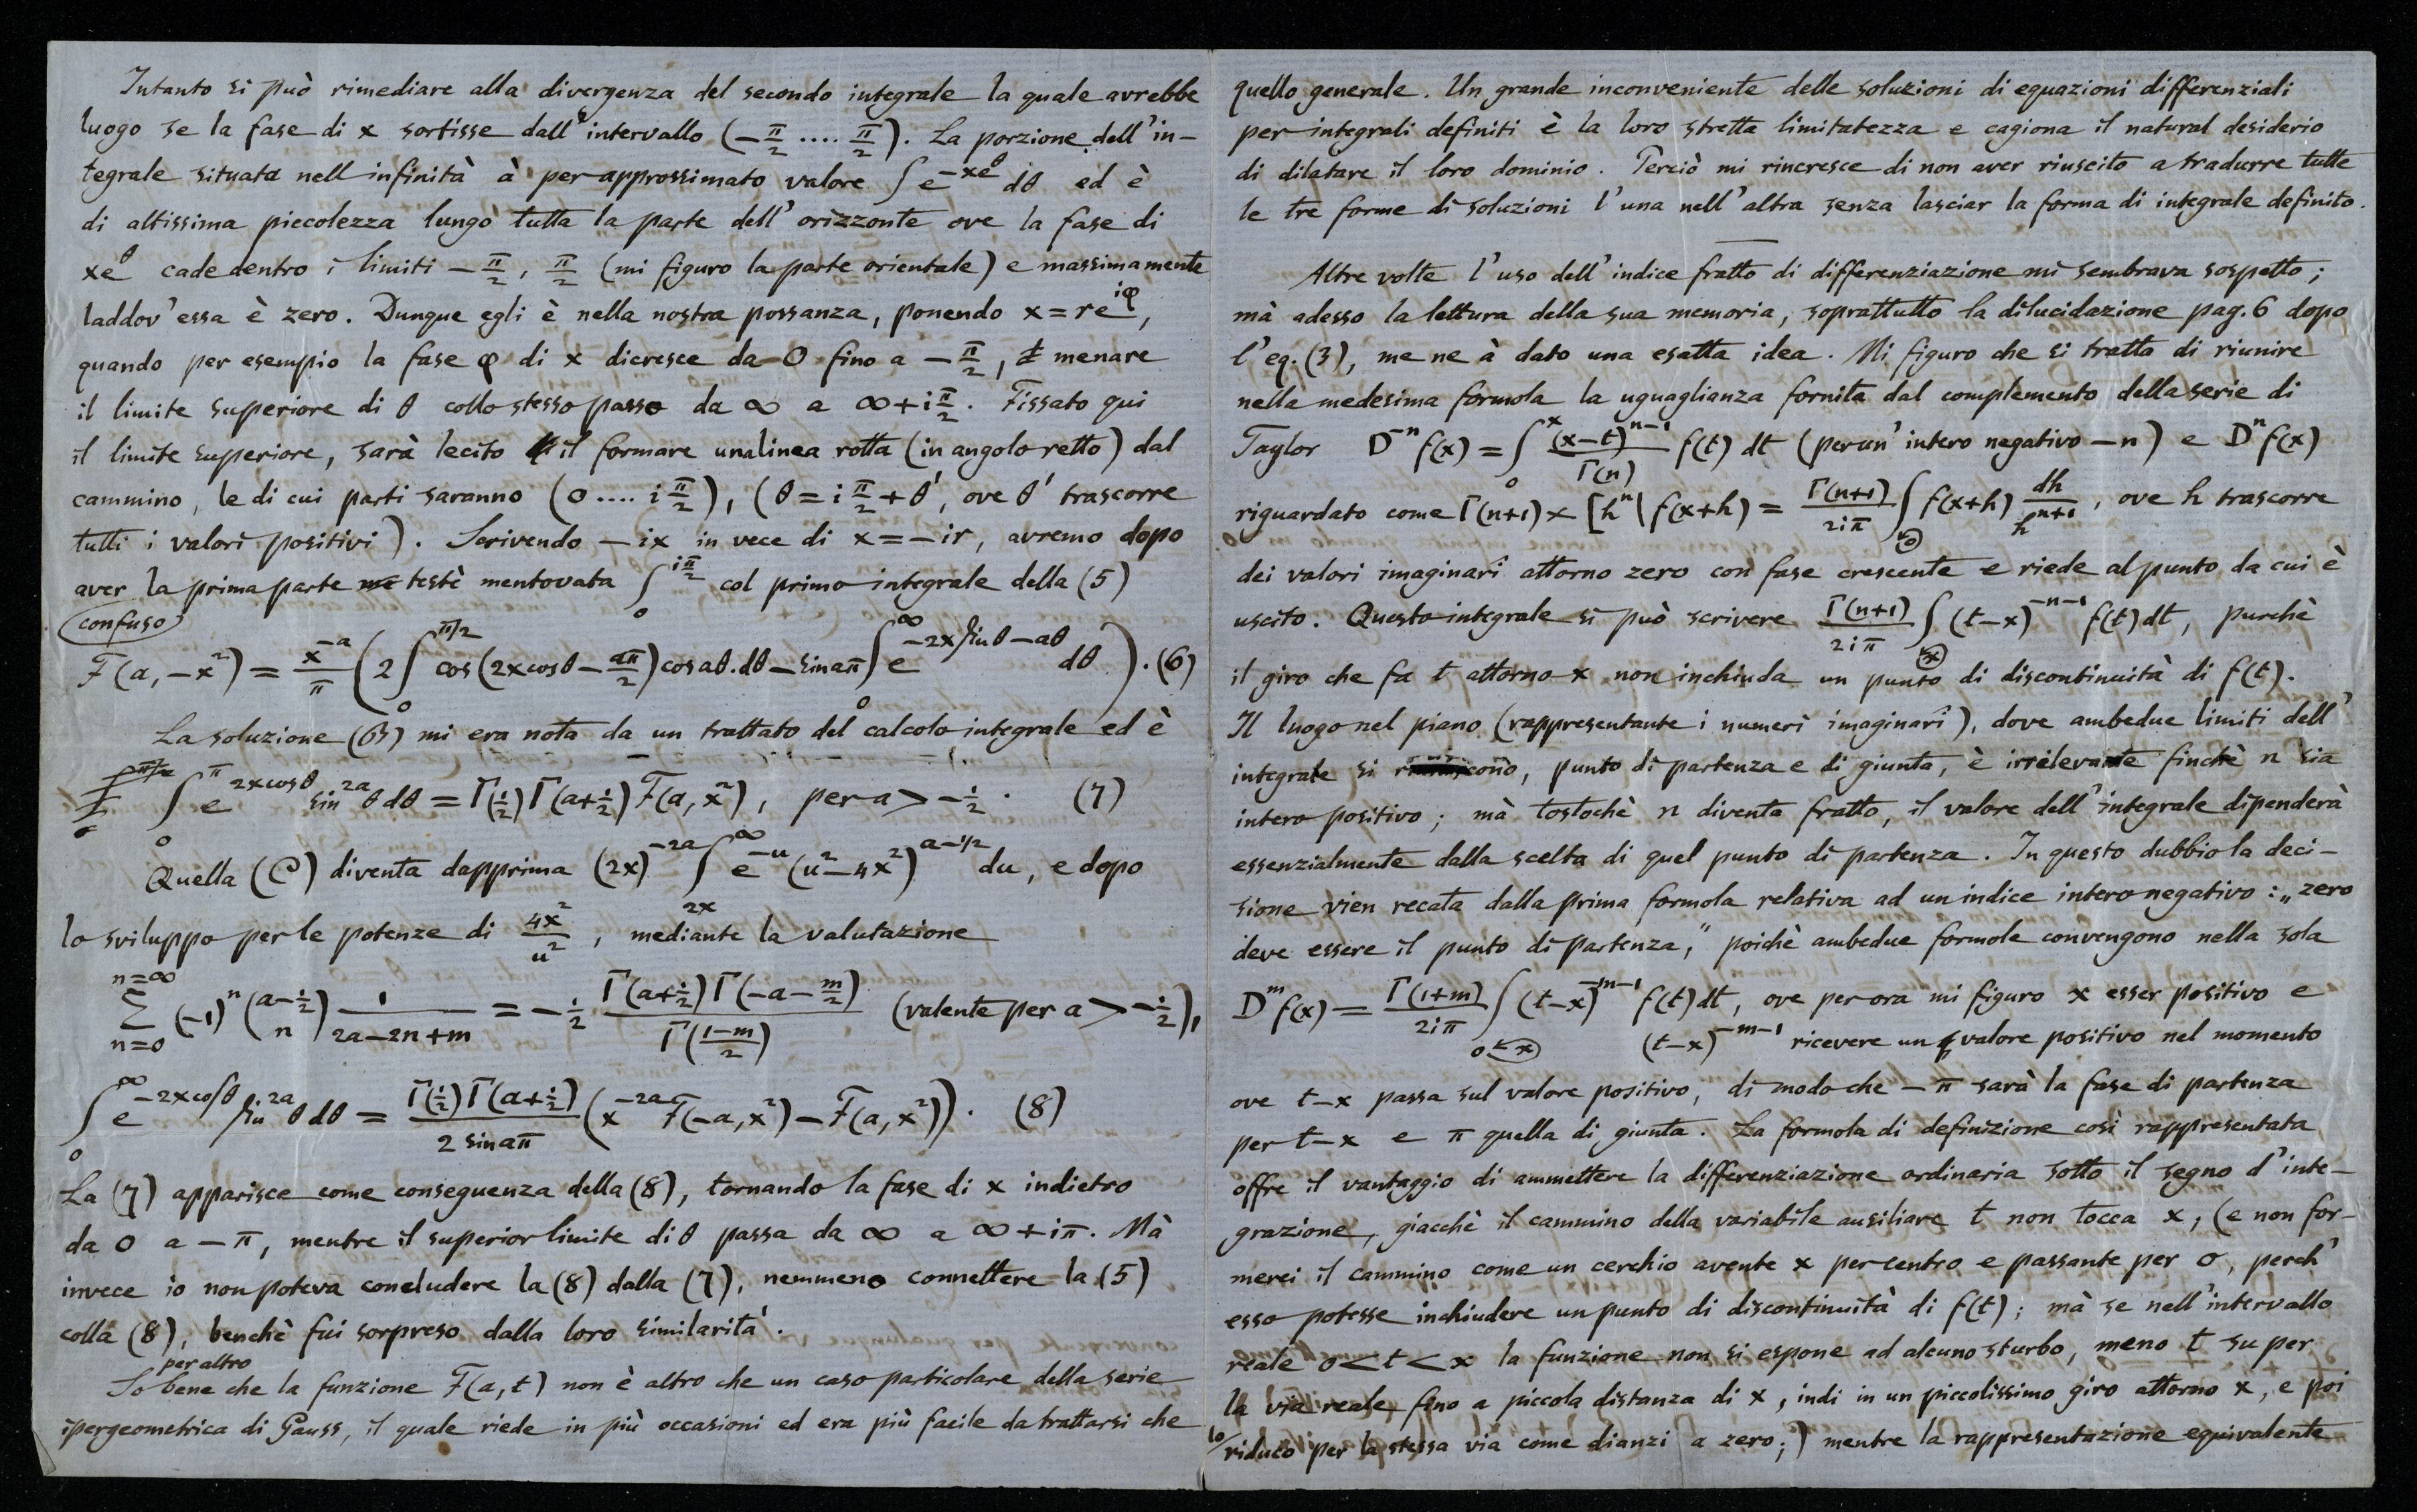 Intanto si può rimediare alla divergenza del secondo integrale la quale avrebbe
luogo se la fase di x sortisse dall' intervallo (−π/2 .... π/2). La porzione dell'in-
tegrale situata nell infinità à per approssimato valore ∫ e^{−xe^θ} dθ ed è
di altissima piccolezza lungo tutta la parte dell' orizzonte ove la fase di
xe^θ cade dentro i limiti −π/2, π/2 (mi figuro la parte orientale) e massimamente
laddov' essa è zero. Dunque egli è nella nostra possanza, ponendo x = re^{iφ},
quando per esempio la fase φ di x dicresce da 0 fino a −π/2, menare
il limite superiore di θ collo stesso passo da ∞ a ∞+iπ/2. Fissato qui
il limite superiore, sarà lecito il formare una linea rotta (in angolo retto) dal
cammino, le di cui parti saranno (0 .... iπ/2), (θ = iπ/2 + θ', ove θ' trascorre
tutti i valori positivi). Scrivendo −ix in vece di x = −ir, avremo dopo
aver la prima parte testè mentovata ∫_0^{iπ/2} col primo integrale della (5)
confuso
F(a, −x²) = x^{−a}/π (2∫_0^{π/2} cos(2x cosθ − aπ/2) cos aθ.dθ − sin aπ ∫_0^∞ e^{−2x sin θ − aθ} dθ). (6)
La soluzione (63) mi era nota da un trattato del calcolo integrale ed è
∫_0^π e^{2x cosθ} sin^{2a} θ dθ = Γ(1/2) Γ(a+1/2) F(a, x²), per a > −1/2. (7)
Quella (C) diventa dapprima (2x)^{−2a} ∫_{2x}^∞ e^{−u} (u² − 4x²)^{a−1/2} du, e dopo
lo sviluppo per le potenze di 4x²/u², mediante la valutazione
∑_{n=0}^{n=∞} (−1)^n (a−1/2 n) 1/(2a−2n+m) = −1/2 Γ(a+1/2) Γ(−a−m/2) / Γ((1−m)/2) (valente per a > −1/2),
∫_0^∞ e^{−2x cosθ} sin^{2a} θ dθ = Γ(1/2) Γ(a+1/2) / (2 sin aπ) (x^{−2a} F(−a, x²) − F(a, x²)). (8)
La (7) apparisce come conseguenza della (8), tornando la fase di x indietro
da 0 a −π, mentre il superior limite di θ passa da ∞ a ∞+iπ. Mà
invece io non poteva concludere la (8) dalla (7), nemmeno connettere la (5)
colla (8), benchè fui sorpreso dalla loro similarità.
per altro
So bene che la funzione F(a, t) non è altro che un caso particolare della serie
ipergeometrica di Gauss, il quale riede in più occasioni ed era più facile da trattarsi che
quello generale. Un grande inconveniente delle soluzioni di equazioni differenziali
per integrali definiti è la loro stretta limitatezza e cagiona il natural desiderio
di dilatare il loro dominio. Perciò mi rincresce di non aver riuscito a tradurre tutte
le tre forme di soluzioni l'una nell' altra senza lasciar la forma di integrale definito.
Altre volte l'uso dell' indice fratto di differenziazione mi sembrava sospetto;
mà adesso la lettura della sua memoria, soprattutto la dilucidazione pag. 6 dopo
l'eq. (3), me ne à dato una esatta idea. Mi figuro che si tratta di riunire
nella medesima formola la uguaglianza fornita dal complemento della serie di
Taylor D^{−n} f(x) = ∫_0^x (x−t)^{n−1}/Γ(n) f(t) dt (per un' intero negativo −n) e D^n f(x)
riguardato come Γ(n+1) × [h^n\ f(x+h) = Γ(n+1)/2iπ ∫ f(x+h) dh/h^{n+1}, ove h trascorre
dei valori imaginarî attorno zero con fase crescente e riede al punto da cui è
uscito. Questo integrale si può scrivere Γ(n+1)/2iπ ∫ (t−x)^{−n−1} f(t) dt, purchè
il giro che fa t attorno x non inchiuda un punto di discontinuità di f(t).
Il luogo nel piano (rappresentante i numeri imaginarî), dove ambedue limiti dell'
integrale si, punto di partenza e di giunta, è irrelevante finchè n sia
intero positivo; mà tostochè n diventa fratto, il valore dell' integrale dipenderà
essenzialmente dalla scelta di quel punto di partenza. In questo dubbio la deci-
sione vien recata dalla prima formola relativa ad un indice intero negativo: „zero
deve essere il punto di partenza," poichè ambedue formole convengono nella sola
D^m f(x) = Γ(1+m)/2iπ ∫ (t−x)^{−m−1} f(t) dt, ove per ora mi figuro x esser positivo e
(t−x)^{−m−1} ricevere un valore positivo nel momento
ove t−x passa sul valore positivo, di modo che −π sarà la fase di partenza
per t−x e π quella di giunta. La formola di definizione così rappresentata
offre il vantaggio di ammettere la differenziazione ordinaria sotto il segno d'inte-
grazione, giacchè il cammino della variabile ausiliare t non tocca x, (e non for-
merei il cammino come un cerchio avente x per centro e passante per 0, perch'
esso potesse inchiudere un punto di discontinuità di f(t); mà se nell' intervallo
reale 0 < t < x la funzione non si espone ad alcuno sturbo, meno t su per
la via reale fino a piccola distanza di x, indi in un piccolissimo giro attorno x, e poi
lo riduco per la stessa via come dianzi a zero;) mentre la rappresentazione equivalente